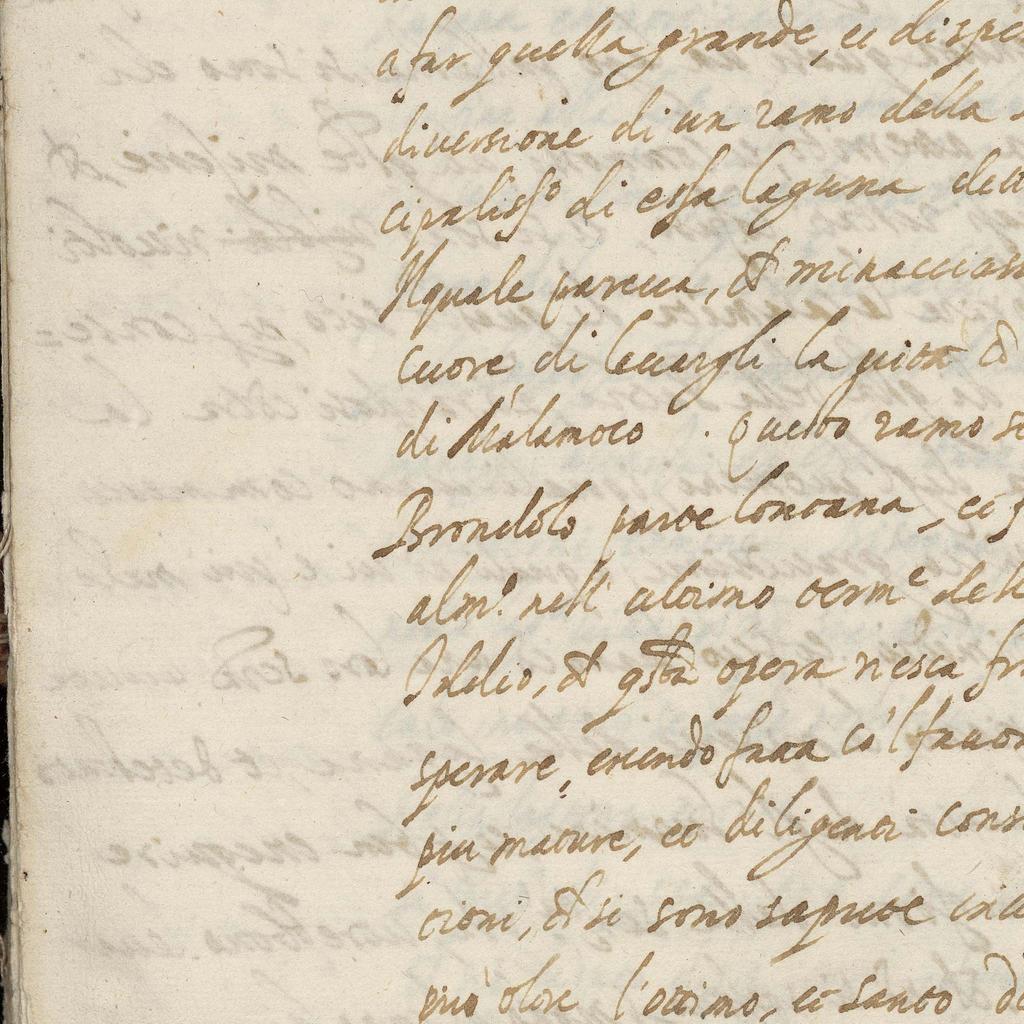 a far quella grande, et di spe
diversione di un ramo della
cipaliss.o di essa laguna dett
Il quale pareua, & minacciass
cuore di leuargli la uita
di Malamoco. Questo ramo
Brondolo parte lontana, et
alm.o nell' ultimo term.e dell
Iddio, & q.sta opera riesca
sperare, essendo fatta cò 'l fauor
piu mature, et diligenti cons
tioni, & si sono sapute
può oltre l'ottimo, et santo